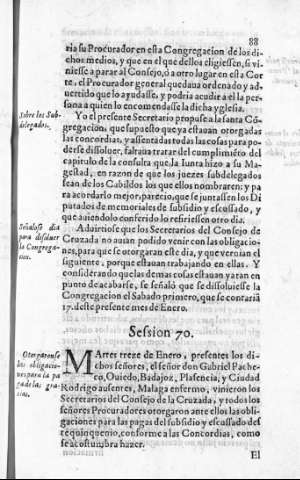 88
ria su Procurador en esta Congregacion de los di-
chos medios, y que en el que dellos eligiessen, si vi-
niesse a parar al Consejo, ó a otro lugar en esta Cor
te, el Procurador general quedaua ordenado y ad-
uertido que lo ayudasse, y podria acudir a el la per-
sona a quien lo encomendasse la dicha yglesia.
Sobre los Sub-
delegados.
Yo el presente Secretario propuse a la santa Cõ
gregacion, que supuesto que ya estauan otorgadas
las concordias, y assentadas todas las cosas para po-
derse dissoluer, faltaua tratar del cumplimiẽto del
capitulo de la consulta que la Iunta hizo a su Ma-
gestad, en razon de que los juezes subdelegados
sean de los Cabildos los que ellos nombraren: y pa
ra acordarlo mejor, parecio, que se juntassen los Di
putados de memoriales de subsidio y escusado, y
que auiendolo conferido lo refiriessen otro dia.
Señalose dia
para dissoluer
la Congrega-
cion.
Aduirtiose que los Secretarios del Consejo de
Cruzada no auian podido venir con las obligacio-
nes, para que se otorgaran este dia, y que vernian el
siguiente, porque estauan trabajando en ellas. Y
considerando que las demas cosas estauan ya tan en
punto de acabarse, se señaló que se dissoluiesse la
Congregacion el Sabado primero, que se contarià
17. deste presente mes de Enero.
Session 70.
Otorgaronse
las obligacio-
nes para la pa
ga de las gra-
cias.
MArtes treze de Enero, presentes los di-
chos señores, el señor don Gabriel Pache-
co, Ouiedo, Badajoz, Plasencia, y Ciudad
Rodrigo ausentes, Malaga enfermo, vinieron los
Secretarios del Consejo de la Cruzada, y todos los
señores Procuradores otorgaron ante ellos las obli-
gaciones para las pagas del subsidio y escusado des
te quinquenio, conforme a las Concordias, como
se acostumbra hazer.
El